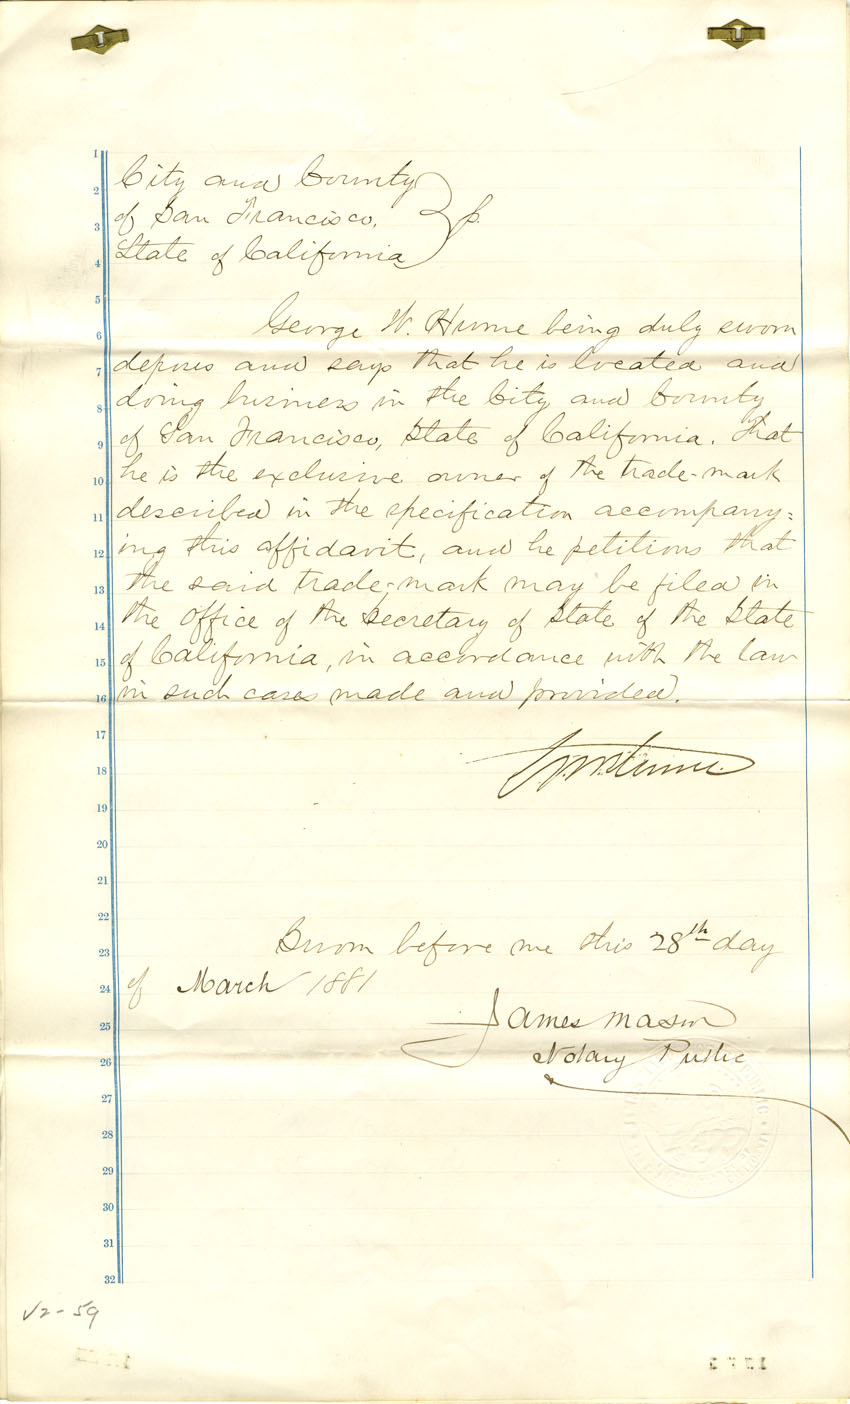 City and County
of San Francisco, } ss.
State of California
George W. Hume being duly sworn
deposes and says that he is located and
doing business in the City and County
of San Francisco, State of California. That
he is the exclusive owner of the trade-mark
described in the specification accompany=
ing this affidavit, and he petitions that
the said trade-mark may be filed in
the office of the Secretary of State of the State
of California, in accordance with the law
in such cases made and provided.
G. W. Hume
Sworn before me this 28th day
of March 1881
James Mason
Notary Public
1
2
3
4
5
6
7
8
9
10
11
12
13
14
15
16
17
18
19
20
21
22
23
24
25
26
27
28
29
30
31
32
V2-59